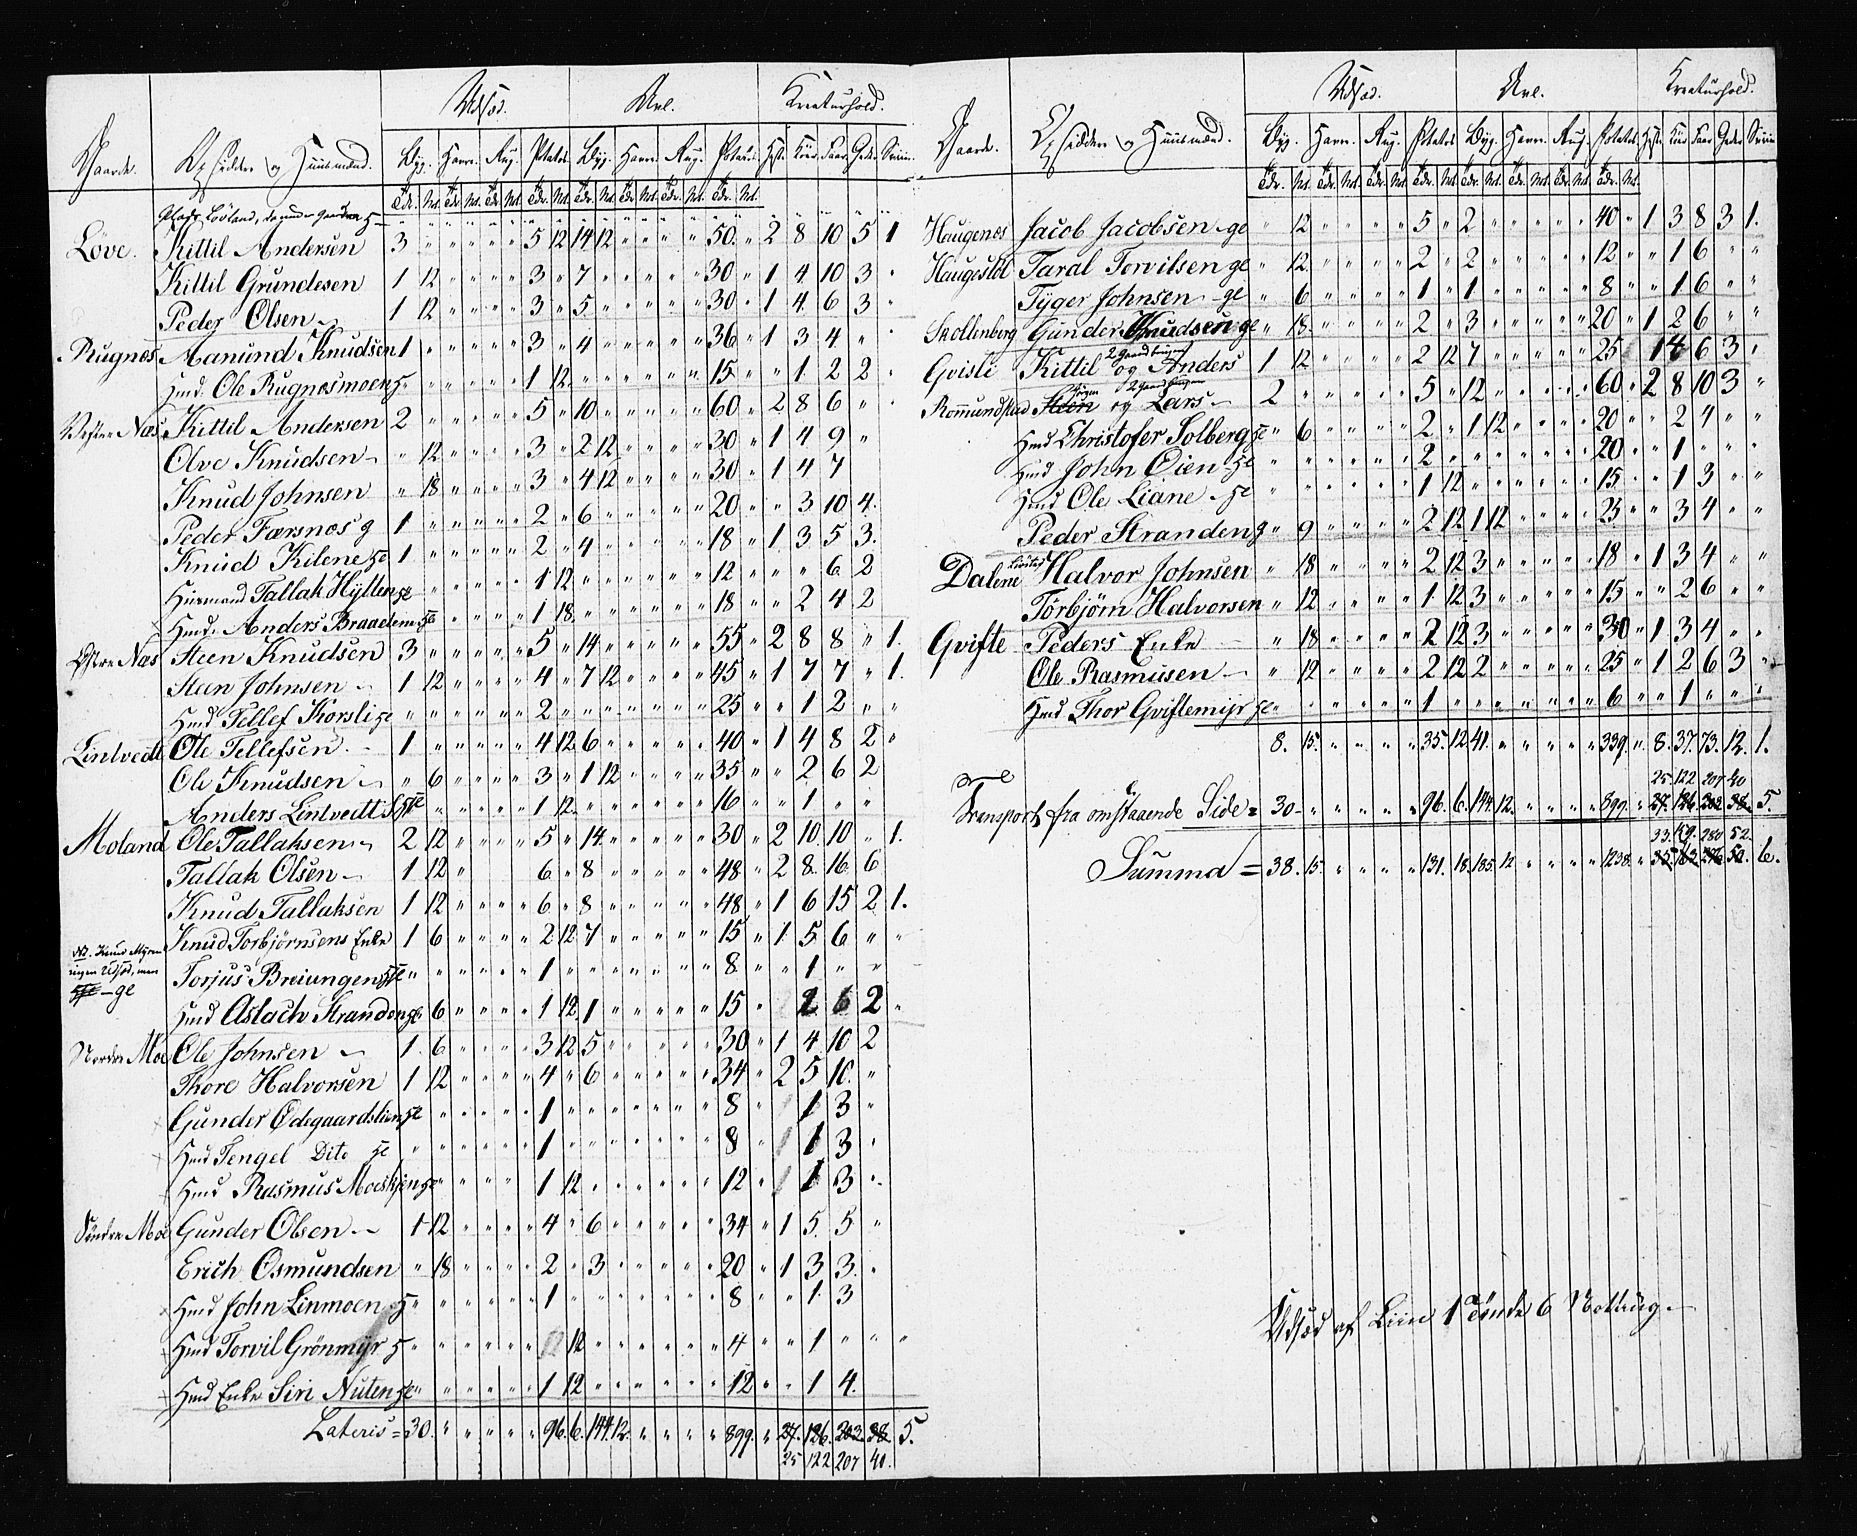 Udsæd. Avl. Kreaturhold.
Gaarde. Opsiddere og Huusmænd. Byg. Havre. Rug. Potates. Byg. Havre. Rug. Potates. Heste. Kiør. Faar. Geder. Sviin.
Tdr. Not. Tdr. Not. Tdr. Not. Tdr. Not. Tdr. Not. Tdr. Not. Tdr. Not. Tdr. Not.
Løve. Kittil Andersen 3 " " " " " 5 12 14 12 " " " " 50. " 2 8 10 5 1
Kittil Grundesen 1 12 " " " " 3 " 7 " " " " " 30 " 1 4 10 3 "
Peder Olsen 1 12 " " " " 3 " 5 " " " " " 30 " 1 4 6 3 "
Rugnes Aanund Knudsen 1 " " " " " 3 " 4 " " " " " 36 " 1 3 4 " "
Hmd. Ole Rugnesmoen " " " " " " 1 12 " " " " " " 15 " " 1 2 2 "
Vestre Næs Kittil Andersen 2 " " " " " 5 " 10 " " " " " 60 " 2 8 6 " "
Olve Knudsen " 12 " " " " 3 " 2 12 " " " " 30 " 1 4 9 "
Knud Johnsen " 18 " " " " 3 " 4 12 " " " " 30 " 1 4 7
Peder Færsnes 1 " " " " " 2 " 6 " " " " " 20 " " 3 10 4.
Knud Kilene 1 " " " " " 2 " 4 " " " " " 18 " 1 3 5 3.
Huusmand Tallak Hylten " " " " " " 1 12 " " " " " " 12 " " " 6 2
Hmd. Anders Braaelem " " " " " " 1 18 " " " " " " 18 " " 2 4 2
Østre Næs Steen Knudsen 3 " " " " " 5 " 14 " " " " " 55 " 2 8 8 " 1.
Steen Johnsen 1 12 " " " " 4 " 7 12 " " " " 45 " 1 7 7 " 1.
Hmd Tellef Korsli " " " " " " 2 " " " " " " " 25 " " 1 2 " "
Lintvedt Ole Tellefsen 1 " " " " " 4 12 6 " " " " " 40 " 1 4 8 2 "
Ole Knudsen " 6 " " " " 3 " 1 12 " " " " 35 " " 2 6 2
Anders Lintvedt " " " " " " 1 12 " " " " " " 16 " " 1 " "
Moland Ole Tallaksen 2 12 " " " " 5 " 14 " " " " " 30 " 2 10. 10 " 1.
Tallak Olsen 1 12 " 6 " 8 " " " " " 48 " 2 8. 16. 6
Knud Tallaksen 1 12 " " " " 6 " 8 " " " " " 48 " 1 6 15 2 1.
Knud Torbjørnsens Enke 1 6 " " " " 2 12 7 " " " " " 15 " 1 5 6 " "
NB. Knud Myren
ingen Udsæd, men
ge
Torjus Breiungen " " " " " " 1 " " " " " " " 8 " " 1 " "
Hmd Aslach Stranden " 6 " " " " 1 12. 1 " " " " " 15 " 2 6 2 "
Nordre Moe Ole Johnsen 1. 6 " " " " 3 12 5 " " " " " 30 " 1 4 10 2
Thore Halvorsen 1 12 " " " " 4 " 6 " " " " " 34 " 2 5 10. "
Gunder Ødegaardslien " " " " " " 1 " " " " " " " 8 " 1 3 "
Hmd Tengel Dito " " " " " " 1 " " " " " " " 8 " 1 3 "
Hmd Rasmus Moeskjen " " " " " " 1 12 " " " " " " 12 " 1 3 "
Søndre Moe Gunder Olsen 1 12 " " " " 4 " 6 " " " " " 34 " 1 5. 5 "
Erich Osmundsen " 18 " " " " 2 " 3 " " " " " 20 " 1 3 3. "
Hmd John Linmoen " " " " " " 1 " " " " " " " 8 " " 1 3
Hmd Torvil Grønmyr " " " " " " 12 " " " " " " 4 " " 1 " " "
Hmd Enke Siri Nuten " " " " " " 1 12 " " " " " " 12 " " 1 4.
Lateris = 30. " " " " " 96. 6. 144. 12. " " " " 899. " 27. 126. 202. 38. 5.
25 122 207 40.
Udsæd. Avl. Kreaturhold.
Gaarde. Opsiddere og Huusmænd. Byg. Havre. Rug. Potates. Byg. Havre. Rug. Potates. Heste. Kiør Faar. Geder Sviin
Tdr. Not. Tdr. Not. Tdr. Not. Tdr. Not. Tdr. Not. Tdr. Not. Tdr. Not. Tdr. Not.
Haugenes Jacob Jacobsen ge " 12 " " " " 5 " 2 " " " " " 40 " 1 3 8 3 1.
Haugestøl Taral Torvilsen ge " 12. " " " " 2 " 2 " " " " " 12 " " 1 6 " "
Tyger Johnsen ge " 6 " " " " 1 " 1 " " " " " 8 " " 1 6 " "
Skollenberg Gunder Knudsen ge " 18. " " " " 2 " 3 " " " " " 20 " 1 2 6 " "
Gvisli Kittil og Anders 1 12 " " " " 2 12 7 " " " " " 25 1 6 3 "
Romundstad Steen og Lars 2 " " " " " 5 " 12 " " " " " 60 " 2 8 10 3 "
Hmd Christofer Solberg " 6 " " " " 2 " 1 12 " " " " 20 " " 2 4 " "
Hmd John Øien " " " " " " 2 " " " " " " " 20 " " 1 " " "
Hmd Ole Liane " " " " " " 1 12 " " " " " " 15 " " 1 3 " "
Peder Stranden " 9 " " " " 2 12 1 12 " " " " 25 " " 3 4 " "
Dalene Halvor Johnsen " 18 " " " " 2 12 3 " " " " " 18 " 1 3 4 " "
Torbjørn Halvorsen " 12 " " " " 1 12 3 " " " " " 15 " " 2 6 " "
Gvifte Peders Enke " 18 " " " " 2 12 3 " " " " " 30 " 1 3 4 " "
Ole Rasmusen " 12 " " " " 2 12 2 " " " " " 25 " 1 2 6 3 "
Hmd Thor Gviftemyr " " " " " " 1 " " " " " " " 6 " " 1 " " "
8. 15. " " " " 35. 12 41. " " " " " 339. " 8. 37. 73. 12. 1.
25 122 207 40
Transport fra omstaaende Side = 30 " " " " " 96. 6. 144. 12. " " " " 899. " 27. 126. 202 38. 5.
33. 159. 280 52.
Summa = 38. 15. " " " " 131. 18. 185. 12 " " " " 1238. " 35. 163. 276 50. 6.
Udsæd af Liin 1 Tønde 6 Notting.